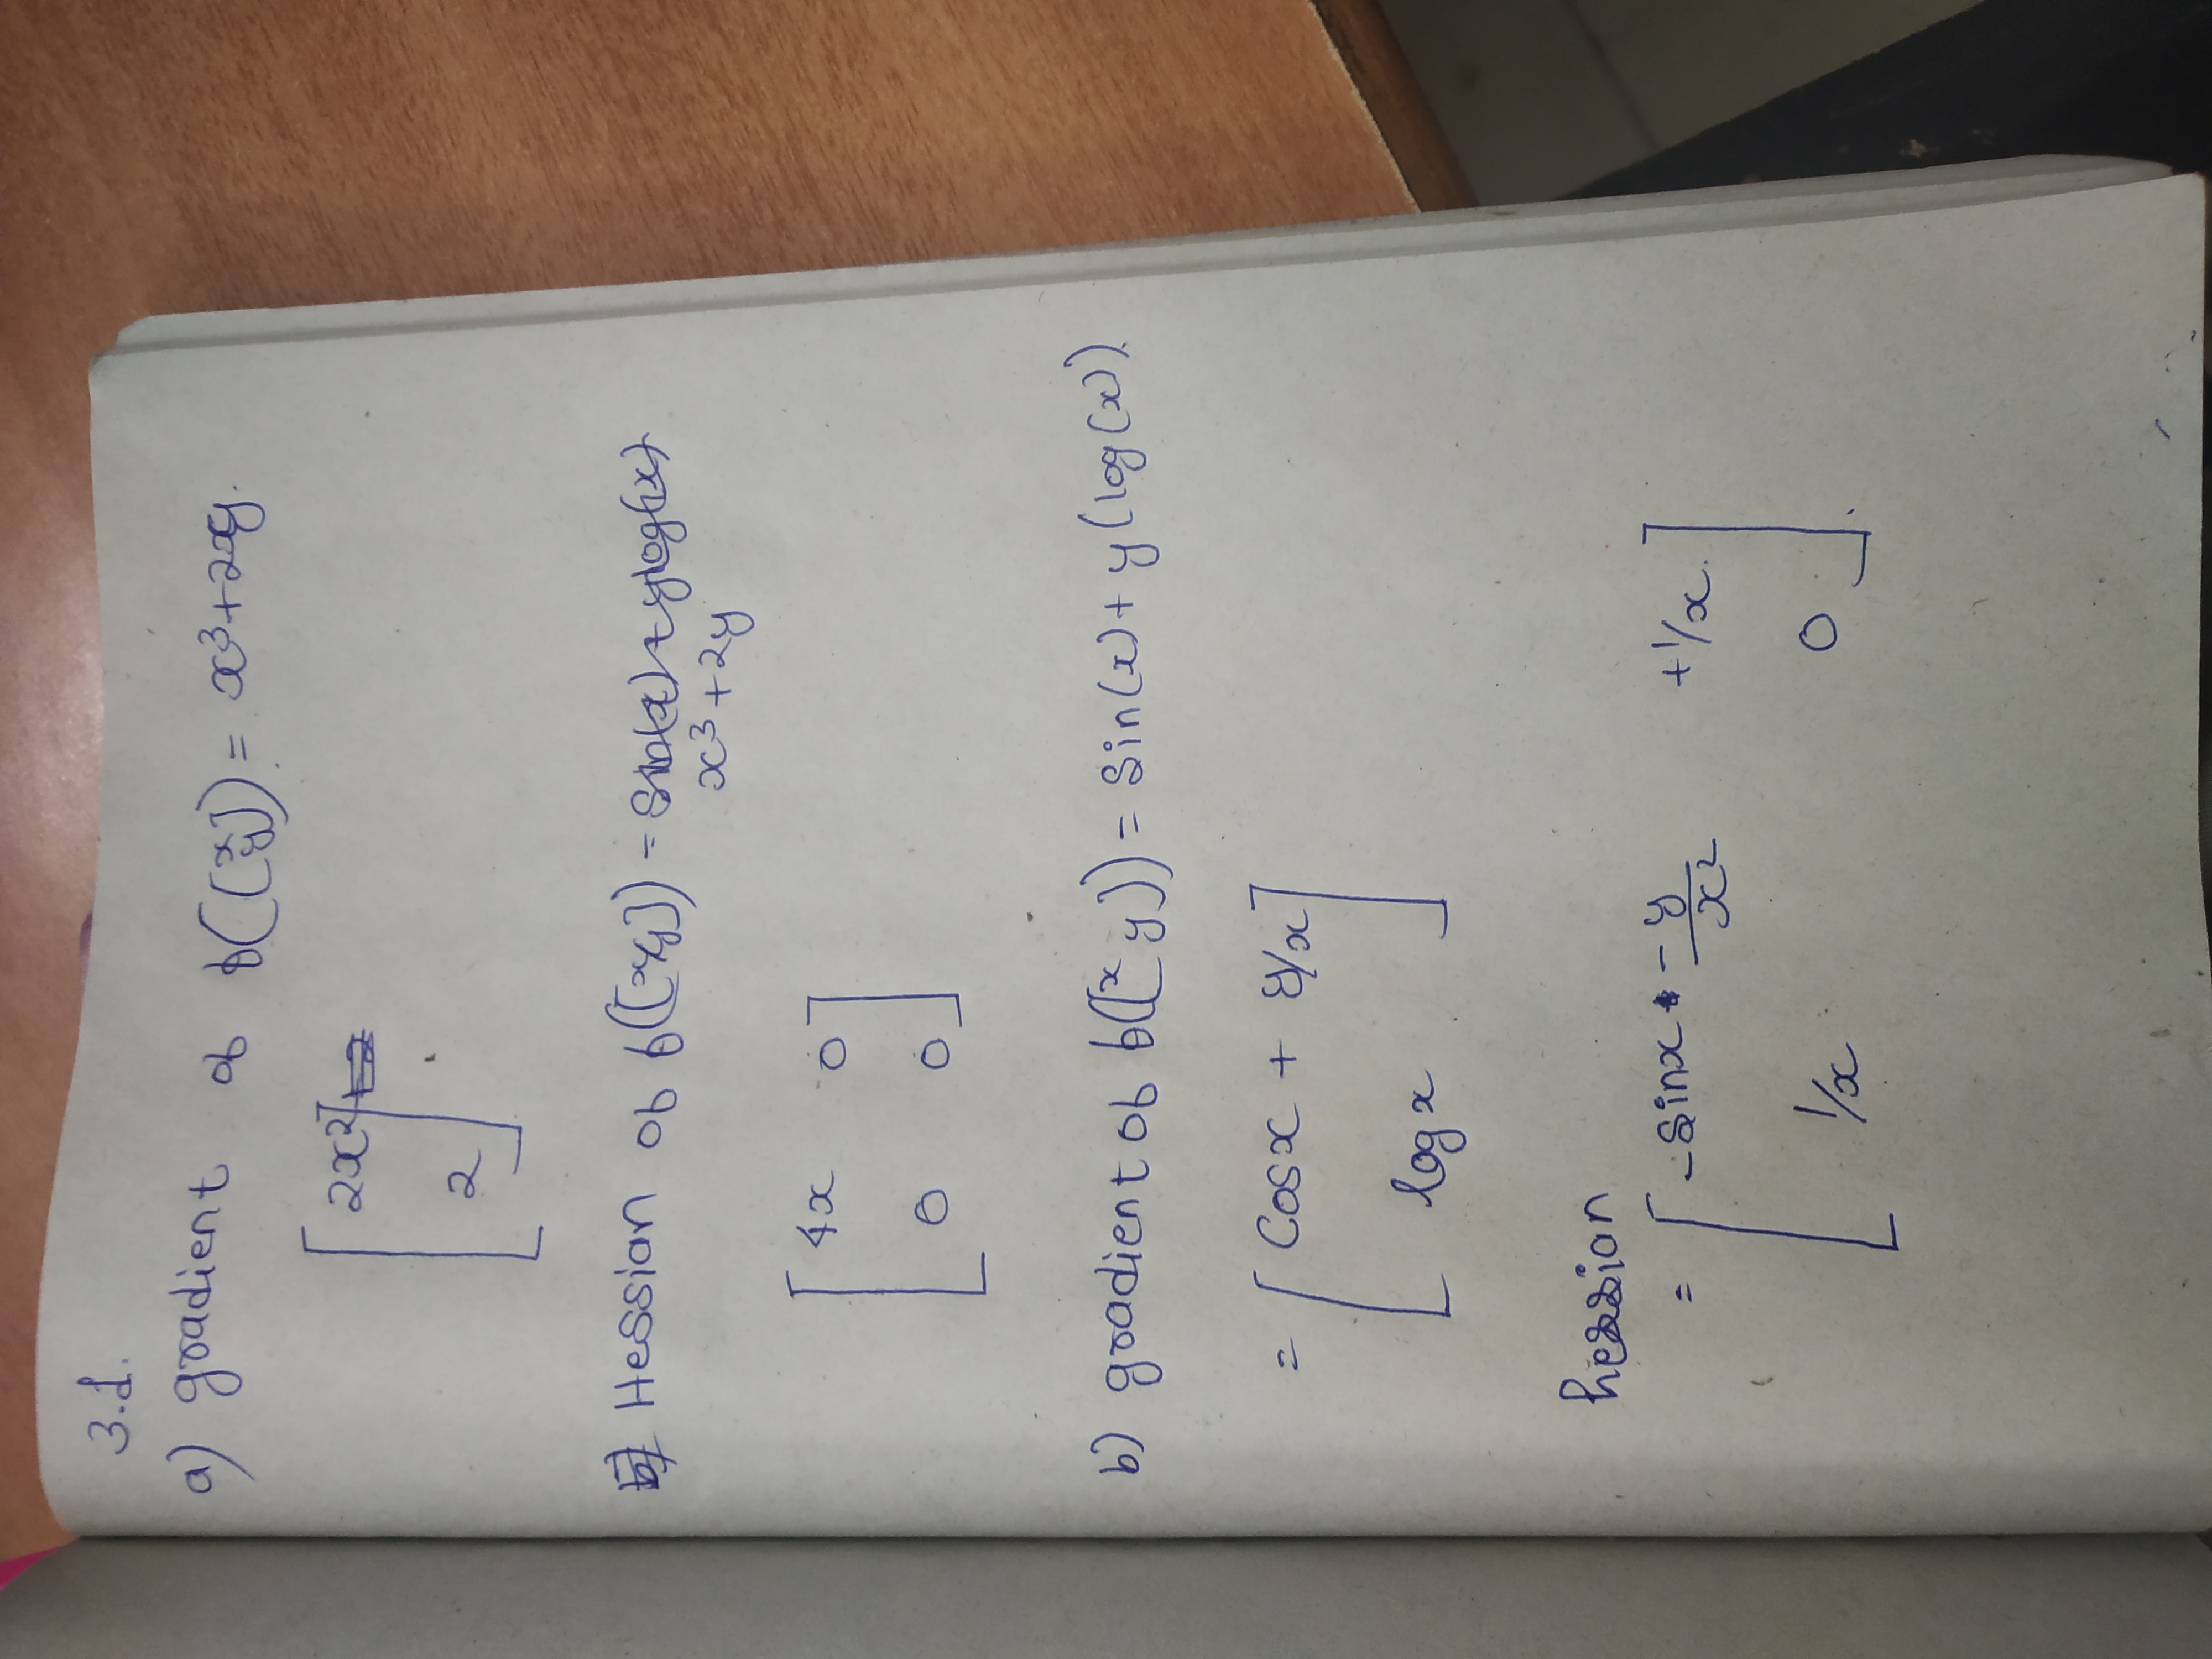 3.d.
a) gradient of f([x y]) = x³+2xy.
[2x²]
[2]
Hessian of f([x/y]) = sin(x) + ylog(x)
x³+2y
[4x 0]
[0 0]
b) gradient of f([x y]) = Sin(x) + y(log(x)).
= [Cosx + y/x]
[logx]
hession
= [-sinx - y/x² +1/x.]
[1/x 0].